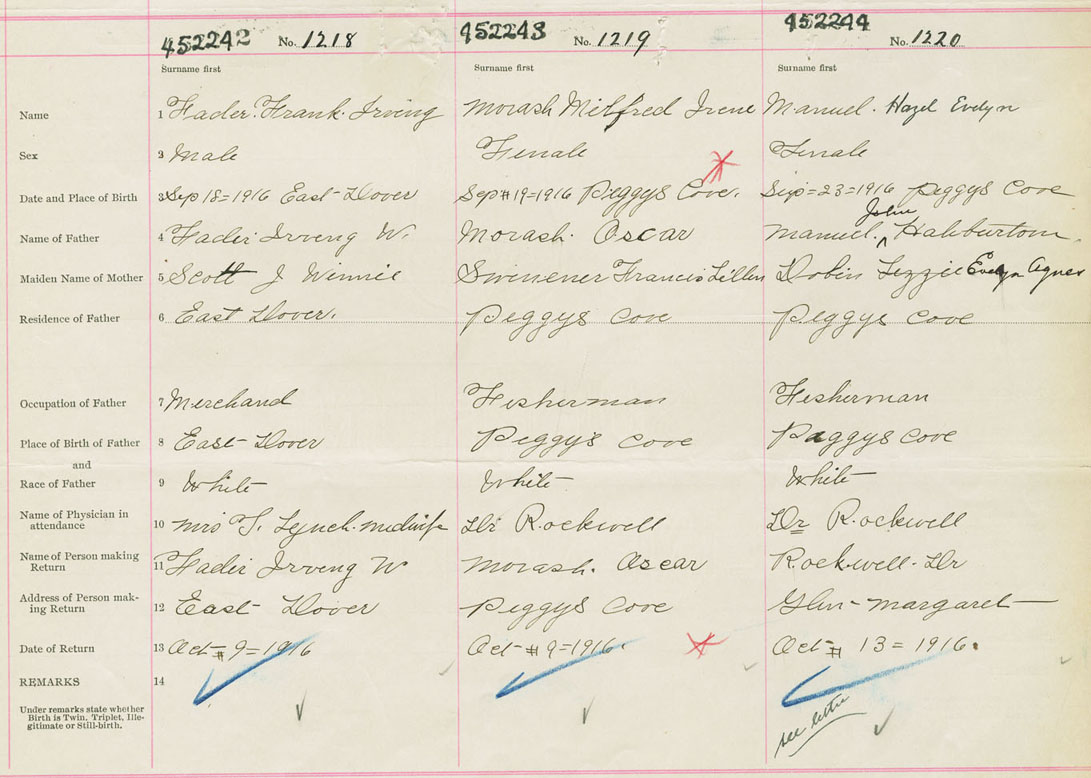 452242 No. 1218 452243 No. 1219 452244 No. 1220
Surname first Surname first Surname first
Name 1 Fader. Frank. Irving Morash Milfred Irene Manuel. Hazel Evelyn
Sex 2 Male Female Female
Date and Place of Birth 3 Sep 18=1916 East Dover Sep # 19=1916 Peggys Cove. Sep=23=1916 Peggys Cove
John
Name of Father 4 Fader Irveng W. Morash. Oscar Manuel. ^ Haliburton.
Maiden Name of Mother 5 Scott J Winnie Francis Lillen Lizzie Evelyn Agnes
Residence of Father 6 East Dover. Peggys Cove Peggys Cove
Occupation of Father 7 Merchand Fisherman Fisherman
Place of Birth of Father 8 East Dover Peggys Cove Paggys Cove
and
Race of Father 9 White White White
Name of Physician in
attendance 10 Mrs T. Lynch. midwife Dr Rockwell Dr Rockwell
Name of Person making
Return 11 Fader Irveng W Morash. Oscar Rockwell. Dr
Address of Person mak-
ing Return 12 East Dover Peggys Cove Glen Margaret
Date of Return 13 Oct # 9=1916 Oct # 9=1916. Oct # 13=1916.
REMARKS 14
Under remarks state whether
Birth is Twin, Triplet, Ille-
gitimate or Still-birth.
see letter